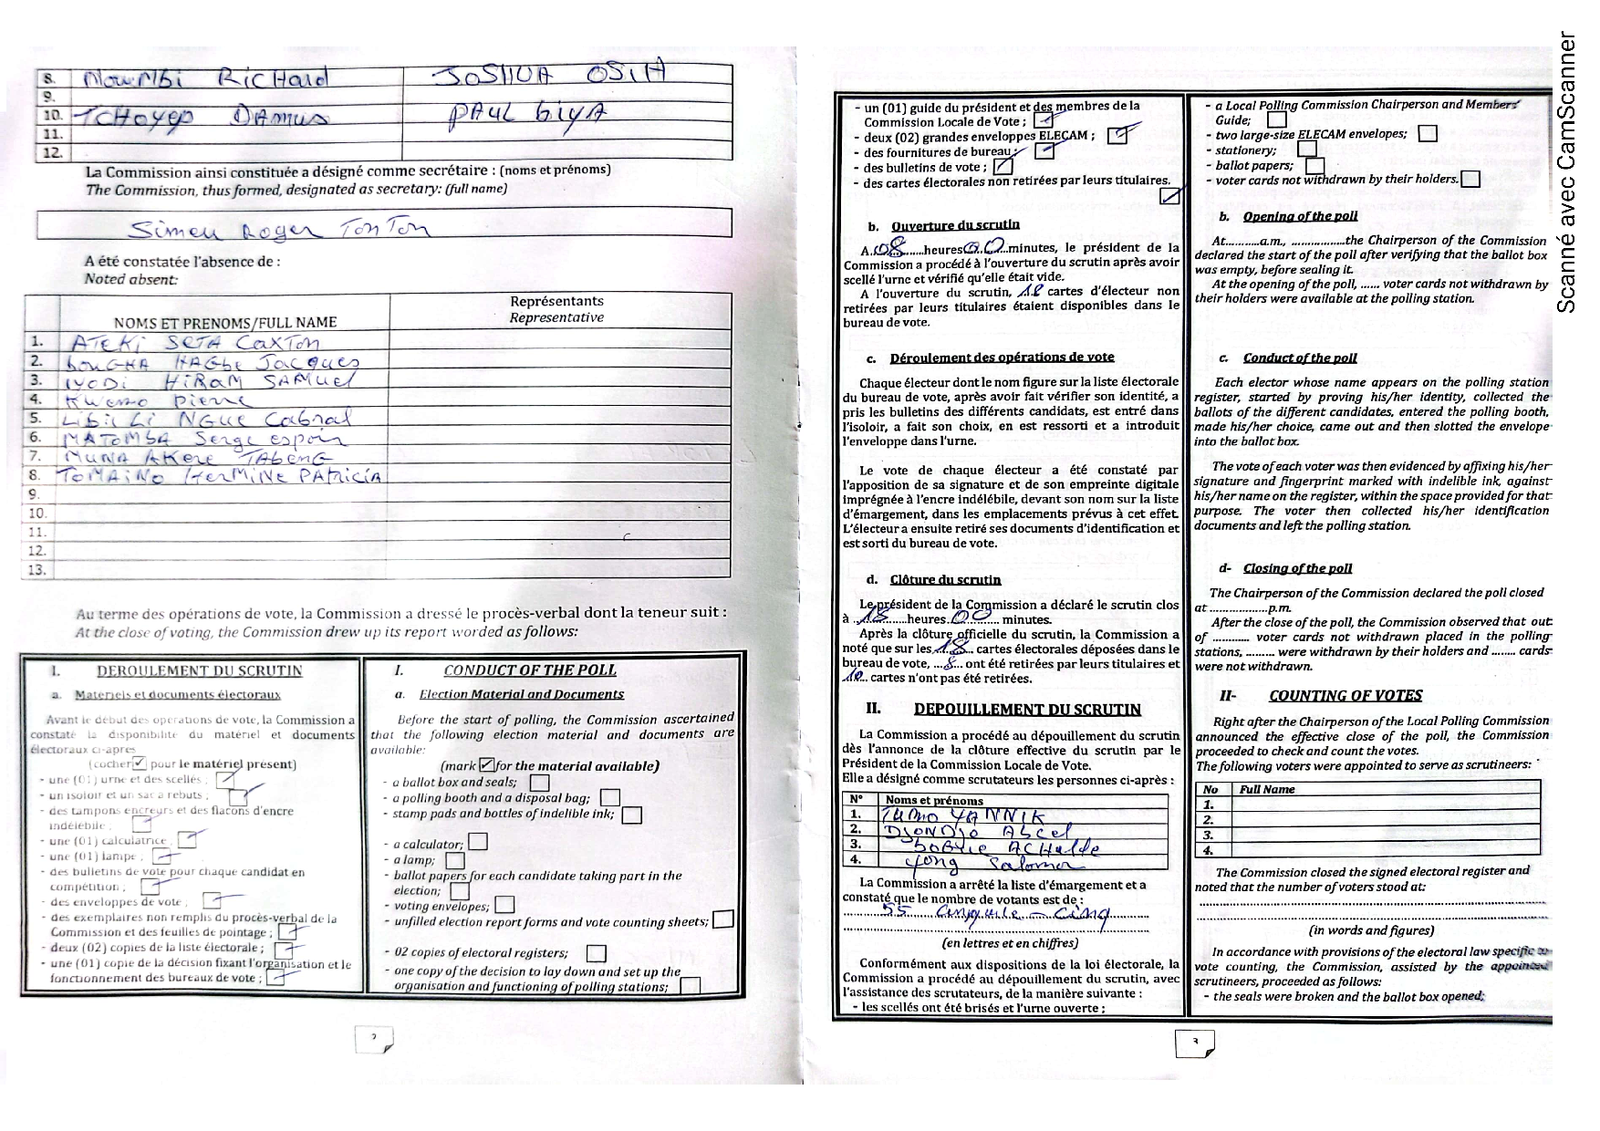 8. MOUMBI RICHARD JOSHUA OSIH
9.
10. TCHOYEP DAMUS PAUL BIYA
11.
12.
La Commission ainsi constituée a désigné comme secrétaire : (noms et prénoms)
The Commission, thus formed, designated as secretary: (full name)
Simeu Roger TonTon
A été constatée l'absence de :
Noted absent:
NOMS ET PRENOMS/FULL NAME
Représentants
Representative
1. ATEKI SETA CAXTON
2. BOUGHA HAGBE Jacques
3. IYODI HIRAM SAMUEL
4. Kwemo Pierre
5. LIBII LI NGUE Cabral
6. MATOMBA Serge espoir
7. MUNA AKERE TABENG
8. TOMAINO HERMINE PATRICIA
9.
10.
11.
12.
13.
Au terme des opérations de vote, la Commission a dressé le procès-verbal dont la teneur suit :
At the close of voting, the Commission drew up its report worded as follows:
I. DEROULEMENT DU SCRUTIN
a. Matériels et documents électoraux
Avant le début des opérations de vote, la Commission a
constaté la disponibilité du matériel et documents
électoraux ci-après
(cocher ✓ pour le matériel présent)
- une (01) urne et des scellés ;
- un isoloir et un sac à rebuts ;
- des tampons encreurs et des flacons d'encre
indélébile ;
- une (01) calculatrice ;
- une (01) lampe ;
- des bulletins de vote pour chaque candidat en
compétition ;
- des enveloppes de vote ;
- des exemplaires non remplis du procès-verbal de la
Commission et des feuilles de pointage ;
- deux (02) copies de la liste électorale ;
- une (01) copie de la décision fixant l'organisation et le
fonctionnement des bureaux de vote ;
I. CONDUCT OF THE POLL
a. Election Material and Documents
Before the start of polling, the Commission ascertained
that the following election material and documents are
available:
(mark ✓ for the material available)
- a ballot box and seals;
- a polling booth and a disposal bag;
- stamp pads and bottles of indelible ink;
- a calculator;
- a lamp;
- ballot papers for each candidate taking part in the
election;
- voting envelopes;
- unfilled election report forms and vote counting sheets;
- 02 copies of electoral registers;
- one copy of the decision to lay down and set up the
organisation and functioning of polling stations;
2
- un (01) guide du président et des membres de la
Commission Locale de Vote ;
- deux (02) grandes enveloppes ELECAM ;
- des fournitures de bureau ;
- des bulletins de vote ;
- des cartes électorales non retirées par leurs titulaires.
b. Ouverture du scrutin
A 08 heures 00 minutes, le président de la
Commission a procédé à l'ouverture du scrutin après avoir
scellé l'urne et vérifié qu'elle était vide.
A l'ouverture du scrutin, 18 cartes d'électeur non
retirées par leurs titulaires étaient disponibles dans le
bureau de vote.
c. Déroulement des opérations de vote
Chaque électeur dont le nom figure sur la liste électorale
du bureau de vote, après avoir fait vérifier son identité, a
pris les bulletins des différents candidats, est entré dans
l'isoloir, a fait son choix, en est ressorti et a introduit
l'enveloppe dans l'urne.
Le vote de chaque électeur a été constaté par
l'apposition de sa signature et de son empreinte digitale
imprégnée à l'encre indélébile, devant son nom sur la liste
d'émargement, dans les emplacements prévus à cet effet.
L'électeur a ensuite retiré ses documents d'identification et
est sorti du bureau de vote.
d. Clôture du scrutin
Le président de la Commission a déclaré le scrutin clos
à 18 heures 00 minutes.
Après la clôture officielle du scrutin, la Commission a
noté que sur les 18 cartes électorales déposées dans le
bureau de vote, 8 ont été retirées par leurs titulaires et
10 cartes n'ont pas été retirées.
II. DEPOUILLEMENT DU SCRUTIN
La Commission a procédé au dépouillement du scrutin
dès l'annonce de la clôture effective du scrutin par le
Président de la Commission Locale de Vote.
Elle a désigné comme scrutateurs les personnes ci-après :
N° Noms et prénoms
1. YANNIK
2. DJONDJO Abcel
3.
4. Yong Salomon
La Commission a arrêté la liste d'émargement et a
constaté que le nombre de votants est de :
55 Cinquante - Cinq
(en lettres et en chiffres)
Conformément aux dispositions de la loi électorale, la
Commission a procédé au dépouillement du scrutin, avec
l'assistance des scrutateurs, de la manière suivante :
- les scellés ont été brisés et l'urne ouverte ;
- a Local Polling Commission Chairperson and Members'
Guide;
- two large-size ELECAM envelopes;
- stationery;
- ballot papers;
- voter cards not withdrawn by their holders.
b. Opening of the poll
At...........a.m., .................the Chairperson of the Commission
declared the start of the poll after verifying that the ballot box
was empty, before sealing it.
At the opening of the poll, ...... voter cards not withdrawn by
their holders were available at the polling station.
c. Conduct of the poll
Each elector whose name appears on the polling station
register, started by proving his/her identity, collected the
ballots of the different candidates, entered the polling booth,
made his/her choice, came out and then slotted the envelope
into the ballot box.
The vote of each voter was then evidenced by affixing his/her
signature and fingerprint marked with indelible ink, against
his/her name on the register, within the space provided for that
purpose. The voter then collected his/her identification
documents and left the polling station.
d- Closing of the poll
The Chairperson of the Commission declared the poll closed
at ..................p.m.
After the close of the poll, the Commission observed that out
of ............ voter cards not withdrawn placed in the polling
stations, ......... were withdrawn by their holders and ........ cards
were not withdrawn.
II- COUNTING OF VOTES
Right after the Chairperson of the Local Polling Commission
announced the effective close of the poll, the Commission
proceeded to check and count the votes.
The following voters were appointed to serve as scrutineers:
No Full Name
1.
2.
3.
4.
The Commission closed the signed electoral register and
noted that the number of voters stood at:
(in words and figures)
In accordance with provisions of the electoral law specific to
vote counting, the Commission, assisted by the appointed
scrutineers, proceeded as follows:
- the seals were broken and the ballot box opened;
3
Scanné avec CamScanner